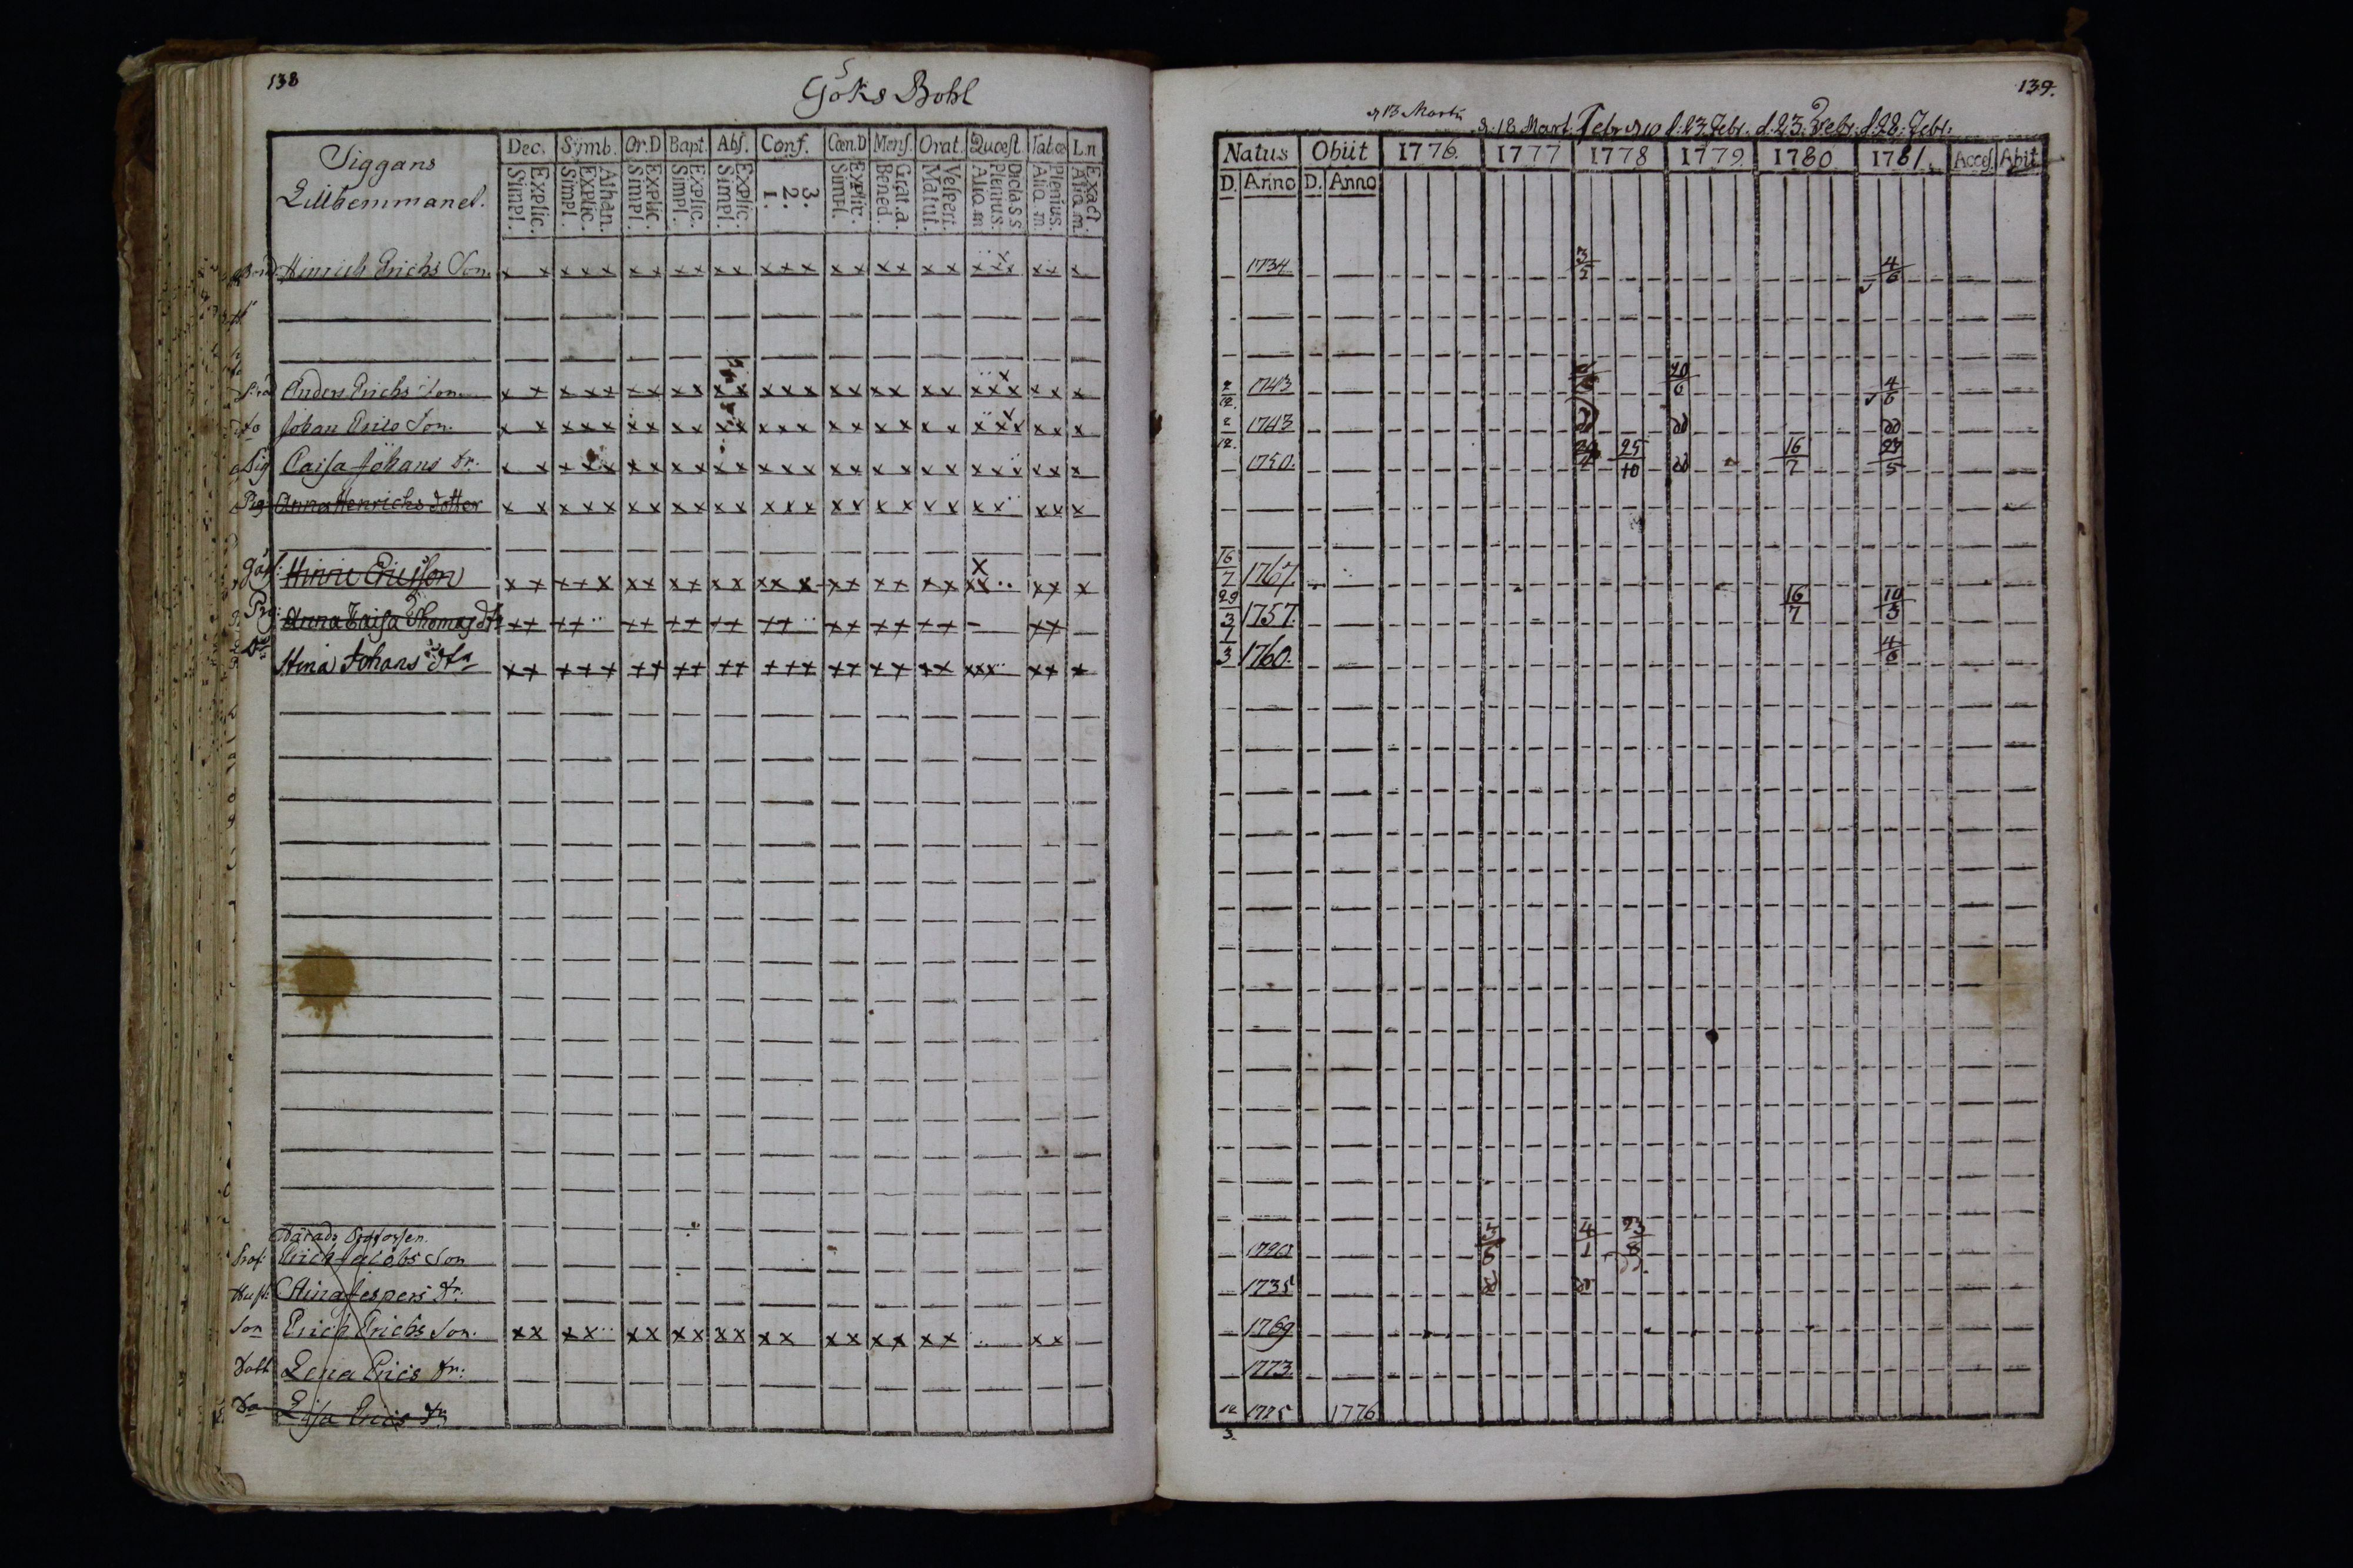 138
Göks Bohl
Siggans
Lillhemmanet.
Dec. Symb. Or.D Bapt. Abs. Conf. Cœn.D Mens. Orat. Quœst. Tab.œ L.n
Simpl. Explic. Simpl. Explic. Athan. Simpl. Explic. Simpl. Explic. Simpl. Explic. 1. 2. 3. Simpl. Explic. Bened. Grat.a. Matut. Vespert. Aliq.m Plenius. Dic.la s s Aliq.m Plenius. Aliq.m Exact.
Bond Hinrich Erichs Son. x x x x x x x x x x x x x x x x x x x x x x x x x x
Anders Erichs Son. x x x x x x x x x x x x x x x x x x x x x x x x x x
dito Johan Erics Son. x x x x x x x x x x x x x x x x x x x x x x x x x x
Pig Caisa Johans dr. x x x x x x x x x x x x x x x x x x x x x x x x x
Pig Anna Henrichs dotter x x x x x x x x x x x x x x x x x x x x x x x x
Hinric Ericsson x x x x x x x x x x x x x x x x x x x x x x x x x
Pig: Anna Caisa Thomas dr x x x x x x x x x x x x x x x x x x x x
Do Stina Johans dr x x x x x x x x x x x x x x x x x x x x x x x x x
Erich Jacobs Son
Hust: Jespers dr:
Son Erich Erichs Son. x x x x x x x x x x x x x x x x x x x x
Dott Lena Erics dr:
Do Lisa Erics dr
139.
d 13 Martii d. 18 Mart. Febr d 10 d. 23 Febr. d. 23. Febr. d. 28. Febr.
Natus Obiit 1776. 1777 1778 1779. 1780 1781. Acces. Abit
D. Anno D. Anno
1734 3/2 4/6
2/12. 1743 20/6 4/6
2/12. 1743 dd dd dd
1750. 25/10 dd 16/7 23/5
16/7 1767.
29/3 1757. 16/7 10/3
1/3 1760. 4/6
1720 5/6 4/1 23/8
1735 dd dd
1769
1773.
12/3. 1775 1776